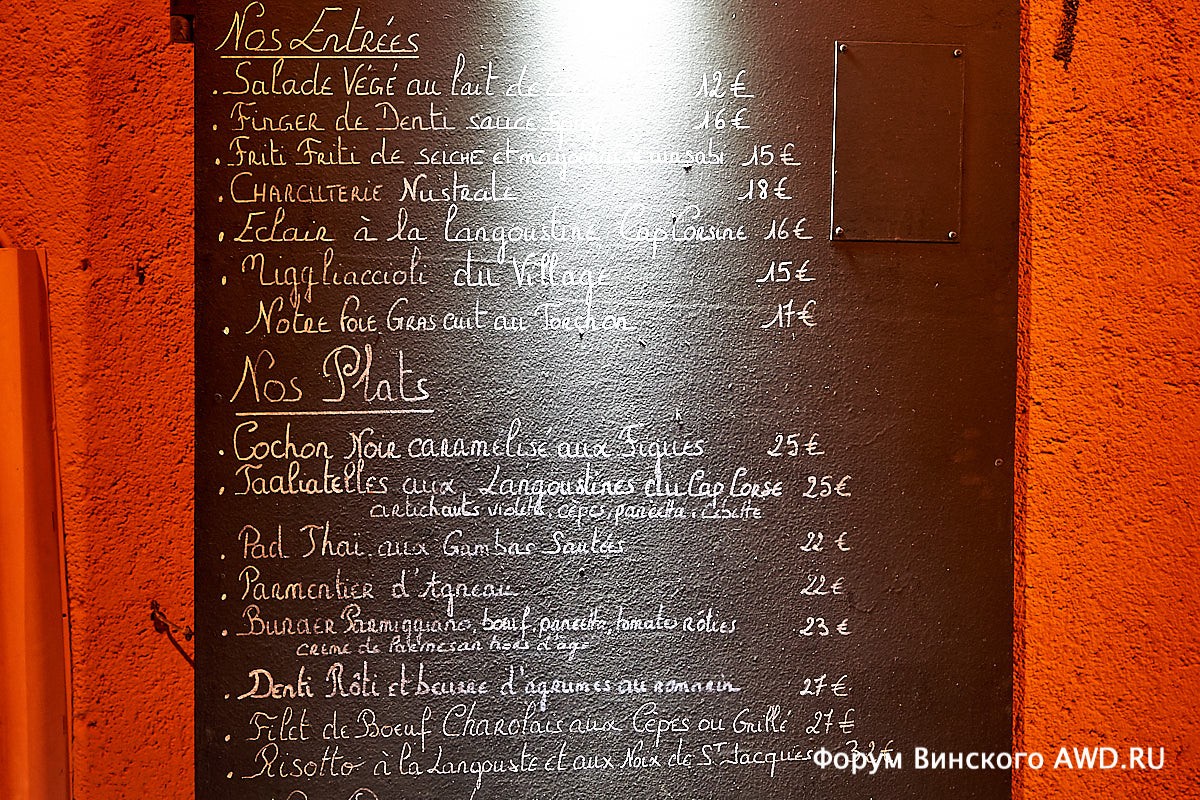 Nos Entrées
. Salade Végé au lait de 12€
. Finger de Denti sauce 16€
. Friti Friti de seiche et wasabi 15€
. Charcuterie Nustrale 18€
. Eclair à la langoustine Cap Corsine 16€
. Miggliaccioli du Village 15€
. Notre Foie Gras cuit au Torchon 17€
Nos Plats
. Cochon Noir caramelisé aux Figues 25€
. Tagliatelles aux Langoustines du Cap Corse 25€
artichauts violets, cèpes, pancetta, cébette
. Pad Thaï aux Gambas Sautées 22€
. Parmentier d'Agneau 22€
. Burger Parmiggiano, boeuf, pancetta, tomates rôties 23€
crème de Parmesan hors d'âge
. Denti Rôti et beurre d'agrumes au romarin 27€
. Filet de Boeuf Charolais aux Cèpes ou Grillé 27€
. Risotto à la Langouste et aux Noix de St Jacques 32€
Форум Винского AWD.RU